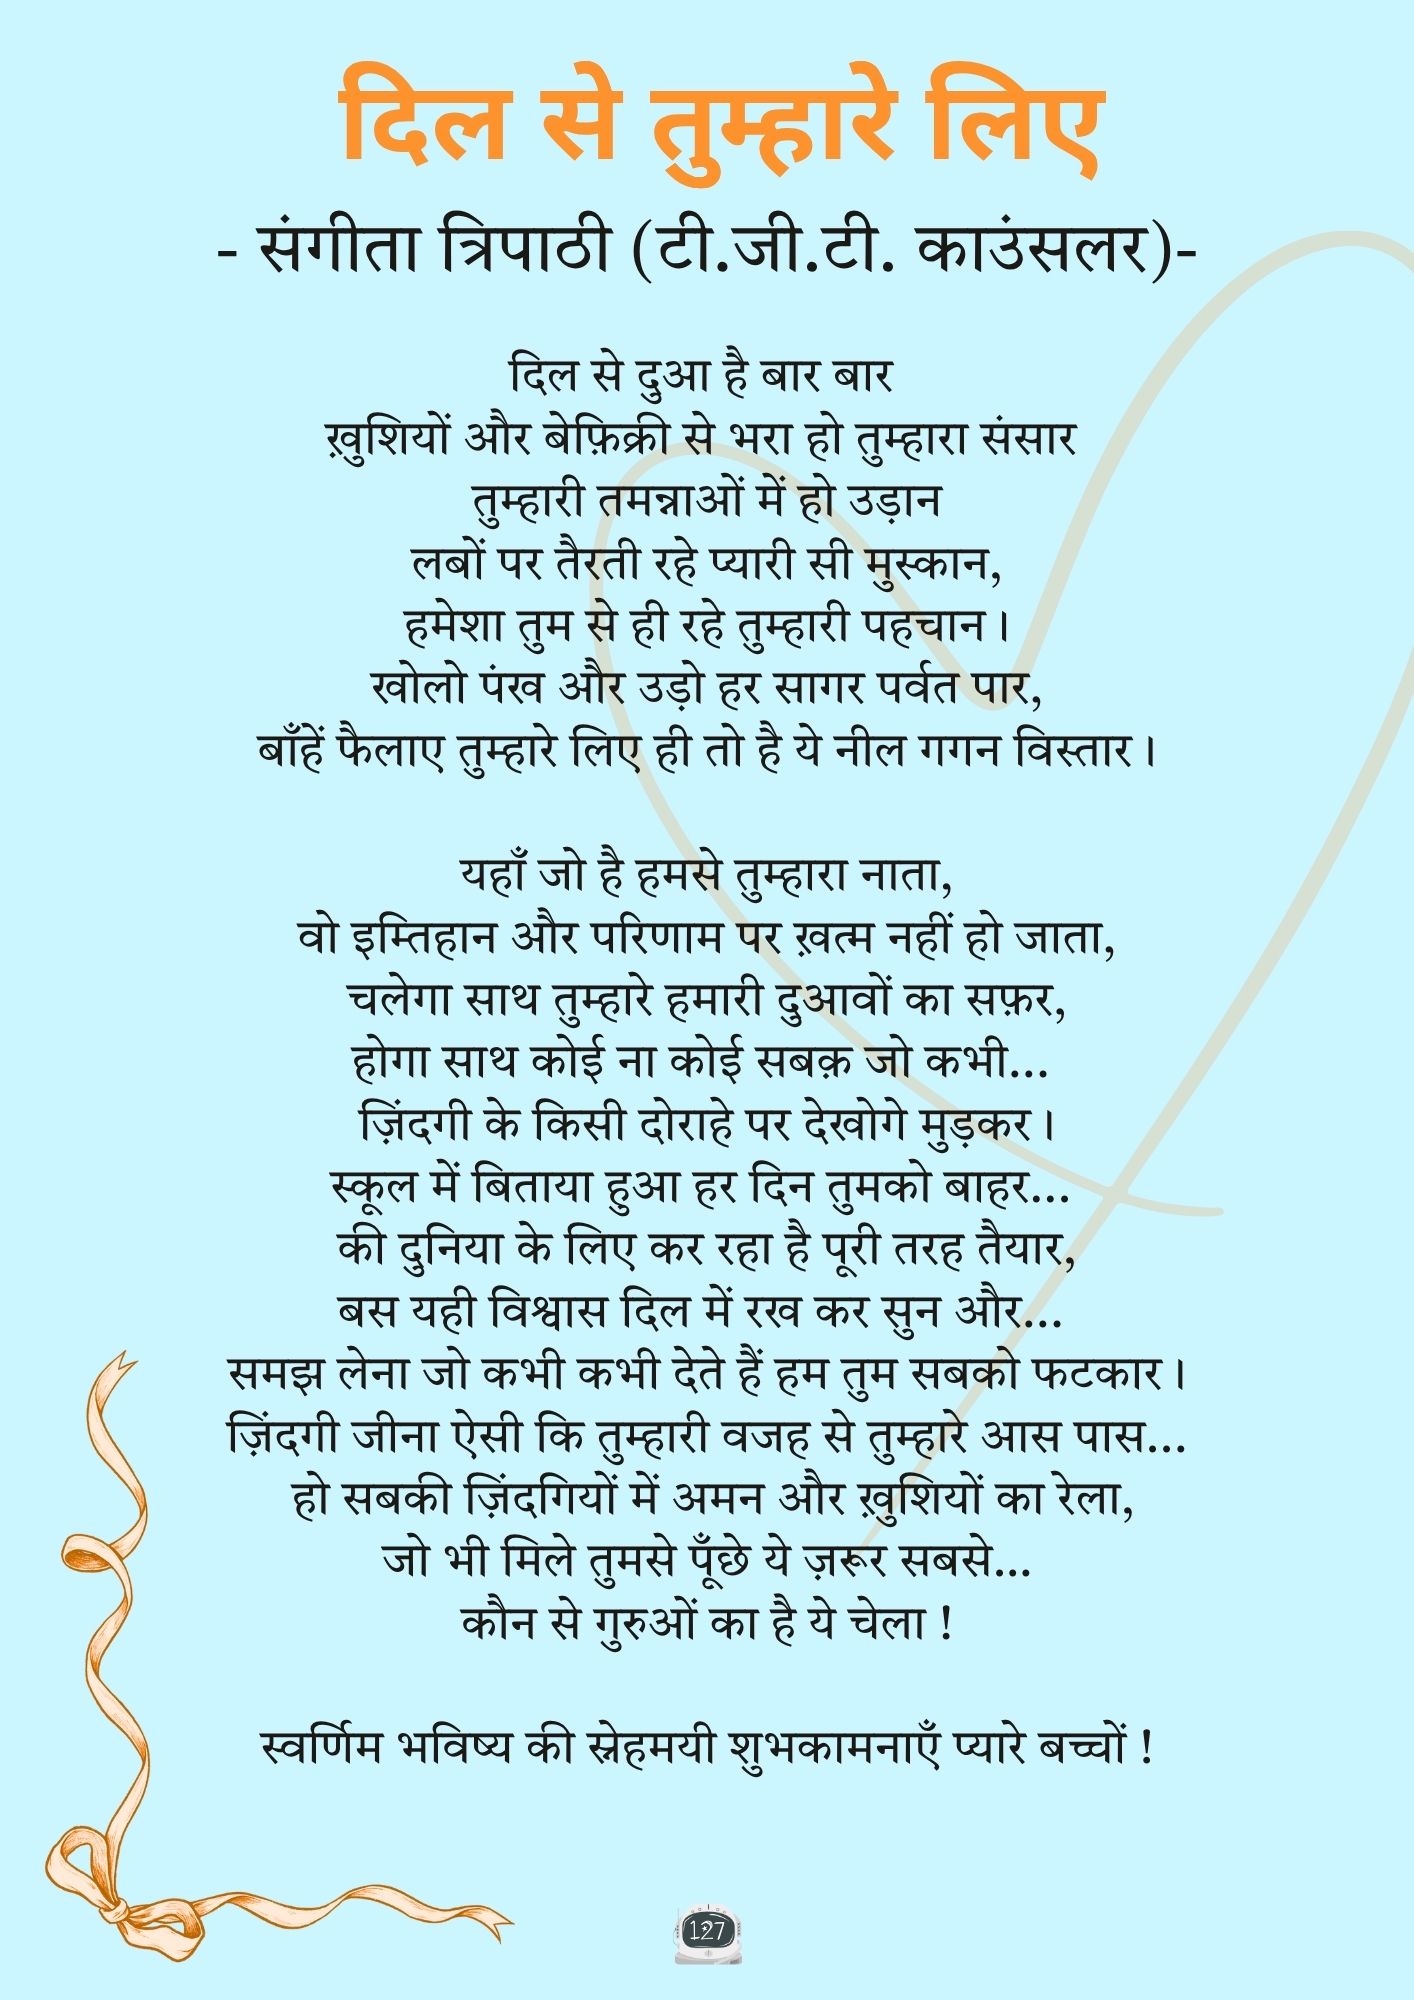 दिल से तुम्हारे लिए
- संगीता त्रिपाठी (टी.जी.टी. काउंसलर)-
दिल से दुआ है बार बार
ख़ुशियों और बेफ़िक्री से भरा हो तुम्हारा संसार
तुम्हारी तमन्नाओं में हो उड़ान
लबों पर तैरती रहे प्यारी सी मुस्कान,
हमेशा तुम से ही रहे तुम्हारी पहचान।
खोलो पंख और उड़ो हर सागर पर्वत पार,
बाँहें फैलाए तुम्हारे लिए ही तो है ये नील गगन विस्तार।
यहाँ जो है हमसे तुम्हारा नाता,
वो इम्तिहान और परिणाम पर ख़त्म नहीं हो जाता,
चलेगा साथ तुम्हारे हमारी दुआवों का सफ़र,
होगा साथ कोई ना कोई सबक़ जो कभी...
ज़िंदगी के किसी दोराहे पर देखोगे मुड़कर।
स्कूल में बिताया हुआ हर दिन तुमको बाहर...
की दुनिया के लिए कर रहा है पूरी तरह तैयार,
बस यही विश्वास दिल में रख कर सुन और...
समझ लेना जो कभी कभी देते हैं हम तुम सबको फटकार।
ज़िंदगी जीना ऐसी कि तुम्हारी वजह से तुम्हारे आस पास...
हो सबकी ज़िंदगियों में अमन और ख़ुशियों का रेला,
जो भी मिले तुमसे पूँछे ये ज़रूर सबसे...
कौन से गुरुओं का है ये चेला !
स्वर्णिम भविष्य की स्नेहमयी शुभकामनाएँ प्यारे बच्चों !
127